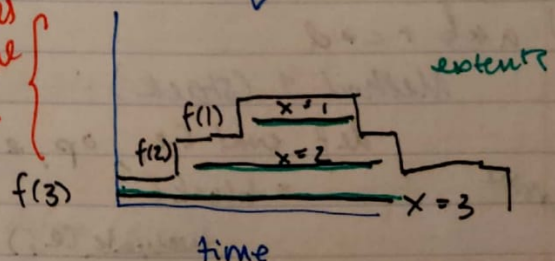 extents
f(1) x = 1
f(2) x = 2
f(3) x = 3
time